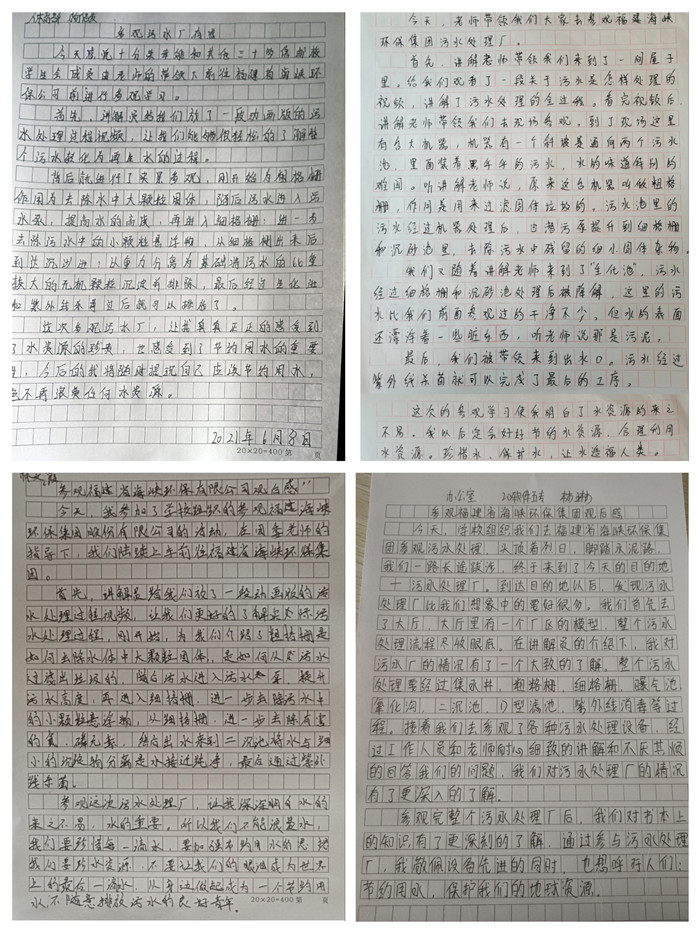 参观污水厂有感
学生会成员由老师的带领下前往福建省海峡环
保公司前进行参观学习。
首先，讲解员给我们放了一段动画做的污
水处理过程视频，让我们能够很轻松的了解整
个污水转化为再生水的过程。
作用为去除水中大颗粒固体，随后污水进入污
水泵，提高水的高度，再进入细格栅：进一步
去除污水中的小颗粒悬浮物，从细格栅出来后
到达沉沙池：以重力分离为基础将污水的比重
较大的无机颗粒沉淀并排除，最后经过生化池
和紫外线杀毒过后就可以排放了。
这次参观污水厂，让我真真正正的感受到
了水资源的珍贵，也感受到了节约用水的重要
性，今后的我将随时提醒自己应该节约用水，
绝不再浪费任何水资源。
2021年6月8日
20×20=400 第 页
今天，老师带领我们大家去参观福建海峡
环保集团污水处理厂。
首先，讲解老师带领我们来到了一间屋子
里。给我们观看了一段关于污水是怎样处理的
视频，讲解了污水处理的全过程。看完视频后，
讲解老师带领我们去现场参观。到了现场这里
有台大机器，机器有一个斜坡是通向两个污水
池，里面装着黑乎乎的污水，水的味道特别的
难闻。听讲解老师说，原来这台机器叫做粗格
栅，作用是用来过滤固体垃圾的。污水池里的
污水经过机器处理后，由潜污泵提升到细格栅
和沉砂池里，去除污水中残留的细小固体杂物。
我们又随着讲解老师来到了“生化池”，污水
经过细格栅和沉砂池处理后被降解，这里的污
水比我们前面参观过的干净不少，但水的表面
还漂浮着一些脏东西，听老师说那是污泥。
最后，我们被带领来到出水口。污水经过
紫外线杀菌就可以完成了最后的工序。
这次的参观学习使我明白了水资源的来之
不易。我以后定会好好节约水资源，合理利用
水资源。珍惜水，保护水，让水造福人类。
参观福建省海峡环保有限公司观后感”
今天，我参加了学校组织的参观福建海峡
环保集团股份有限公司的活动，在团委老师的
指导下，我们陆续上车前往福建省海峡环保集
团。
首先，讲解员给我们放了一段动画版的污
水处理过程视频，让我们更好的了解实际污
水处理过程，刚开始，为我们介绍了粗格栅是
如何去除水体中大颗粒固体，是如何从污水
过滤出垃圾的，随后污水进入污水泵，提升
污水高度，再进入细格栅，进一步去除污水中
的小颗粒悬浮物，从细格栅，进一步去除有害
的氮，磷元素，然后出水来到二沉池将水与细
小的沉淀物分离走水接过纯净，最后通过紫外
线杀菌。
参观这次污水处理厂，让我深深明白水的
来之不易，水的重要。所以我们不能浪费水，
我们要珍惜每一滴水，要加强节约用水的意识
我们要珍水资源，不要让我们的眼泪成为世界
上的最后一滴水，从身边做起成为一个节约用
水，不随意排放污水的良好青年。
20×20=400 第 页
办公室
参观福建省海峡环保集团观后感
今天，学校组织我们去福建省海峡环保集
团参观污水处理，头顶着烈日，脚踏水泥路，
我们一路长途跋涉，终于来到了今天的目的地
十污水处理厂。到达目的地以后，发现污水
处理厂比我们想象中的要好很多。我们首先去
了大厅，大厅里有一个厂区的模型，整个污水
处理流程尽收眼底。在讲解员的介绍下，我对
污水厂的情况有了一个大致的了解。整个污水
处理要经过集水井，粗格栅，细格栅，曝气池
氧化沟，二沉池，D型滤池，紫外线消毒等过
程。接着我们去参观了各种污水处理设备，经
过工作人员和老师耐心细致的讲解和不厌其烦
的回答我们的问题，我们对污水处理厂的情况
有了更深入的了解。
参观完整个污水处理厂后，我们对书本上
的知识有了更深刻的了解，通过参与污水处理
厂，我敬佩设备先进的同时，也想呼吁人们：
节约用水，保护我们的地球资源。